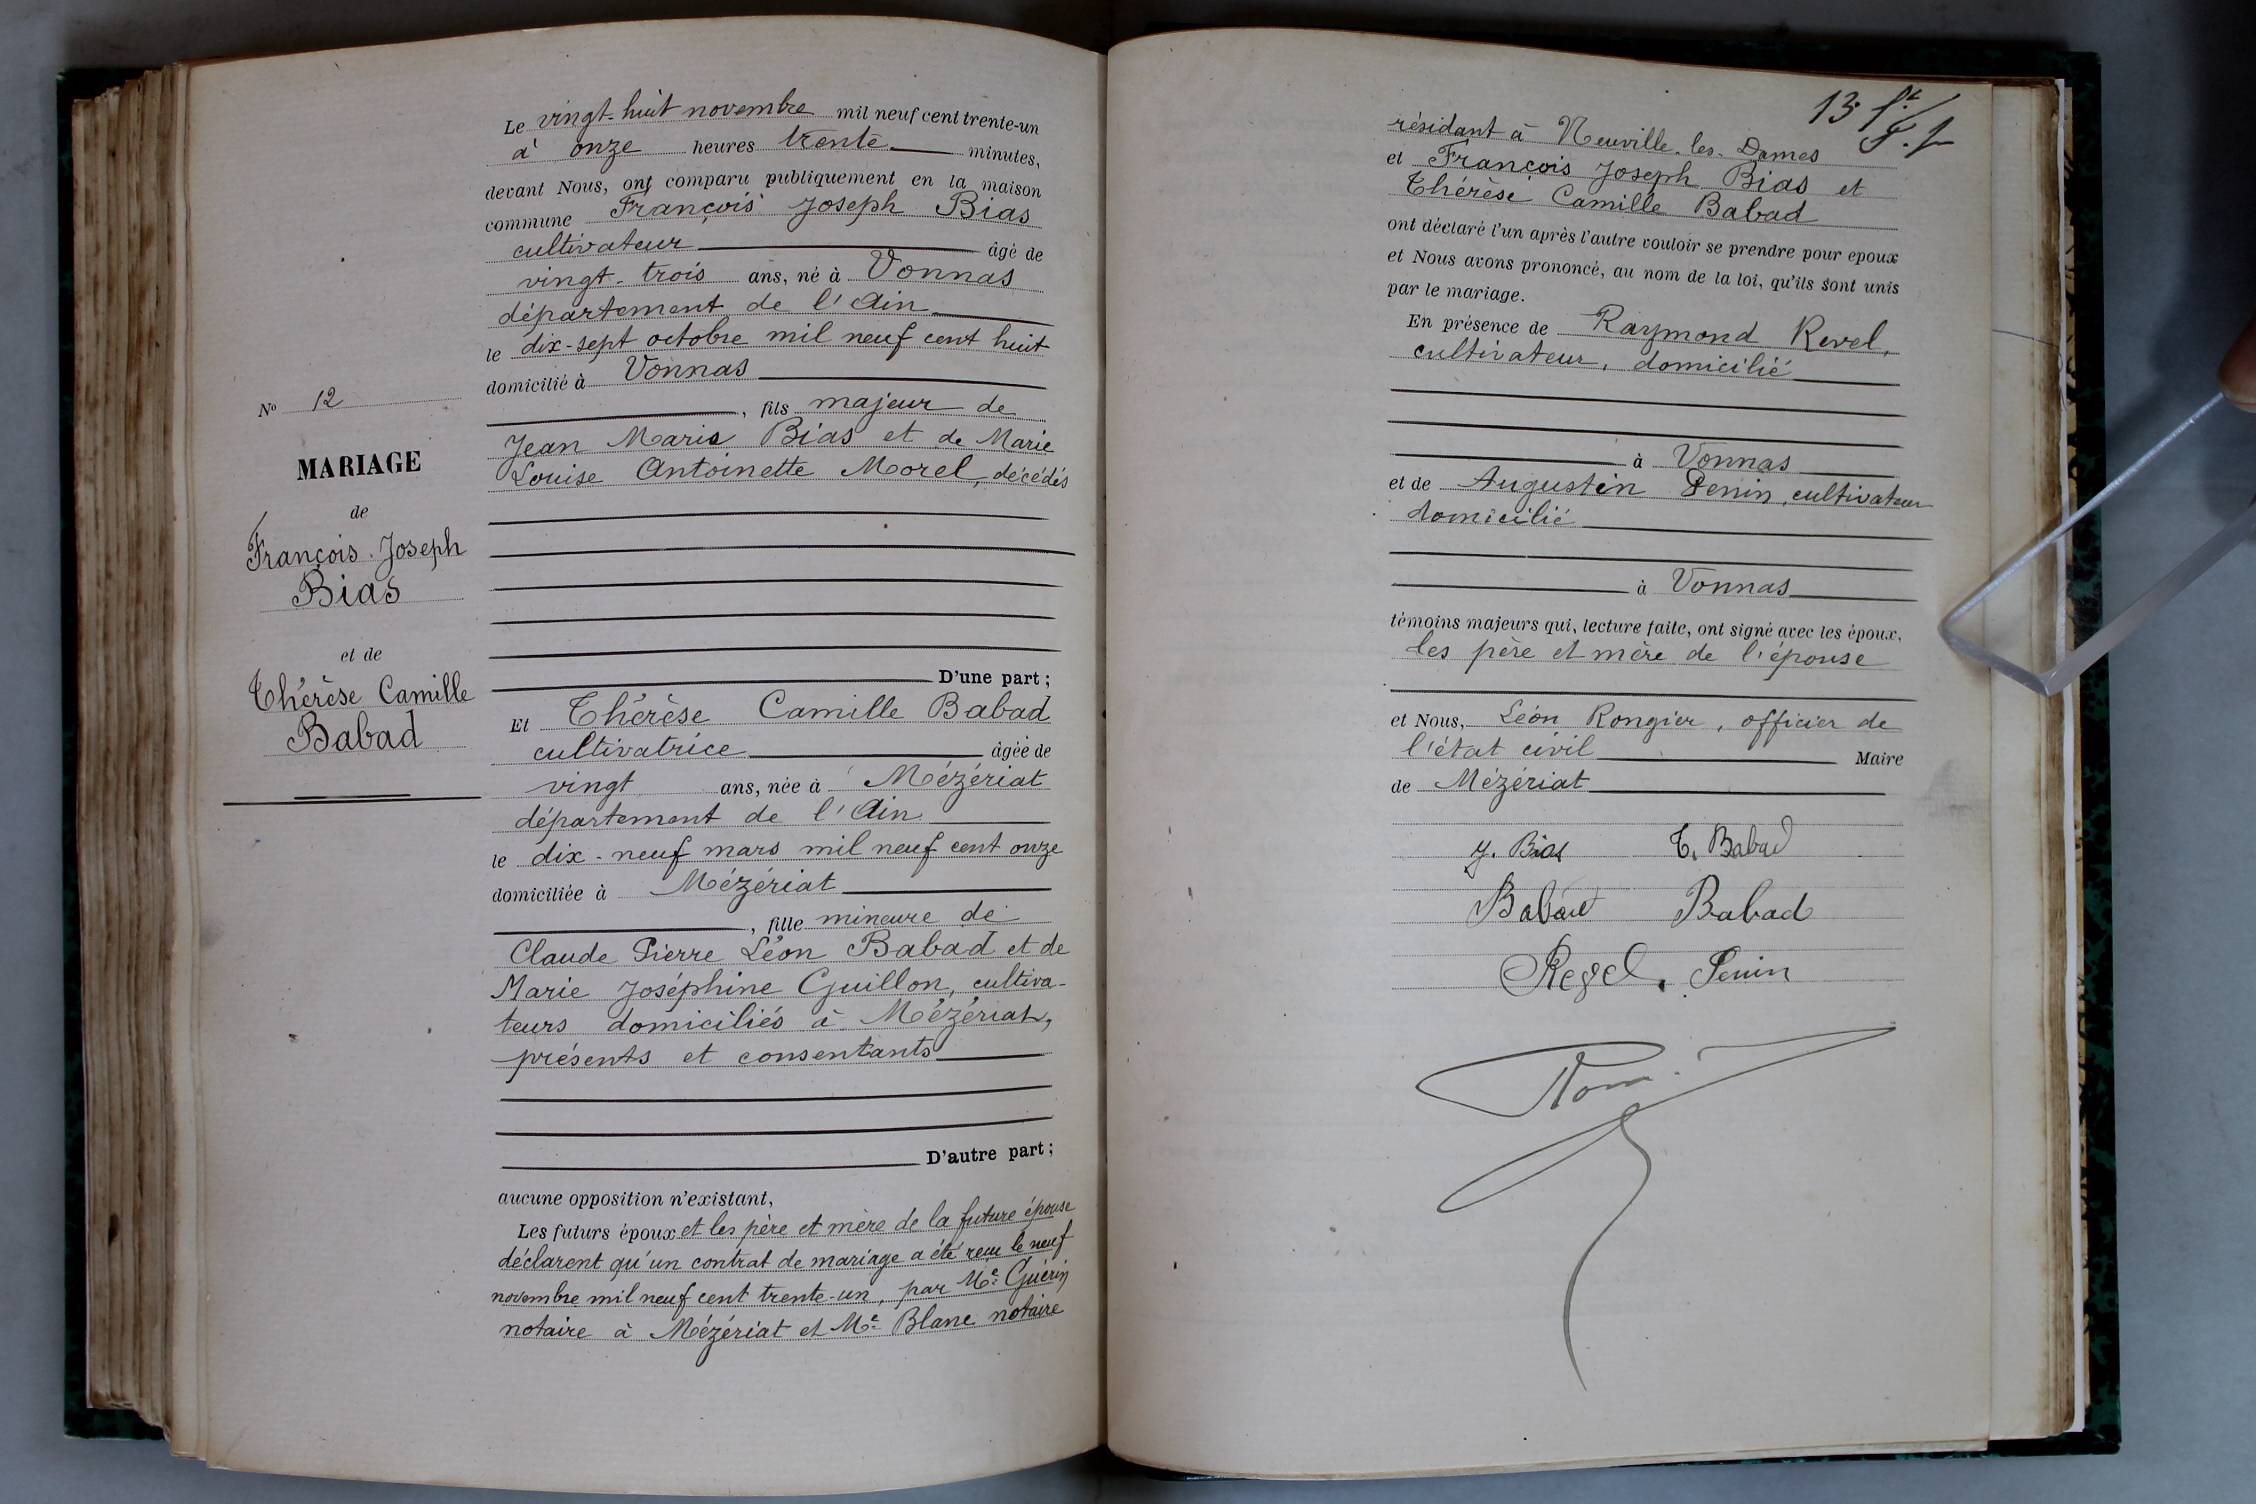 Le vingt-huit novembre mil neuf cent trente-un
à onze heures trente minutes,
devant Nous, ont comparu publiquement en la maison
commune François Joseph Bias
cultivateur âgé de
vingt-trois ans, né à Vonnas
département de l'Ain
le dix-sept octobre mil neuf cent huit
domicilié à Vonnas
, fils majeur de
Jean Marie Bias et de Marie
Louise Antoinette Morel, décédés
D'une part ;
Et Thérèse Camille Babad
cultivatrice âgée de
vingt ans, née à Mézériat
département de l'Ain
le dix-neuf mars mil neuf cent onze
domiciliée à Mézériat
, fille mineure de
Claude Pierre Léon Babad et de
Marie Joséphine Guillon, cultiva-
teurs domiciliés à Mézériat,
présents et consentants
D'autre part ;
aucune opposition n'existant,
Les futurs époux et les père et mère de la future épouse
déclarent qu'un contrat de mariage a été reçu le neuf
novembre mil neuf cent trente-un, par Me Guérin
notaire à Mézériat et Me Blanc notaire
No 12
MARIAGE
de
François-Joseph
Bias
et de
Thérèse Camille
Babad
13
résidant à Neuville-les-Dames
et François Joseph Bias et
Thérèse Camille Babad
ont déclaré l'un après l'autre vouloir se prendre pour epoux
et Nous avons prononcé, au nom de la loi, qu'ils sont unis
par le mariage.
En présence de Raymond Revel,
cultivateur, domicilié
à Vonnas
et de Augustin Penin, cultivateur
domicilié
à Vonnas
témoins majeurs qui, lecture faite, ont signé avec les époux,
les père et mère de l'épouse
et Nous, Léon Rongier, officier de
l'état civil Maire
de Mézériat
J. Bias T. Babad
Babad Babad
Revel. Penin